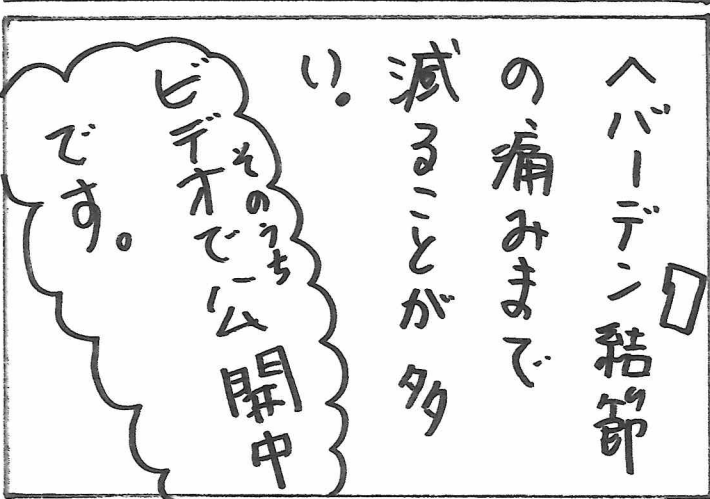 ヘバーデン結節
の痛みまで
減ることが多
い。
そのうち
ビデオで公開中
です。